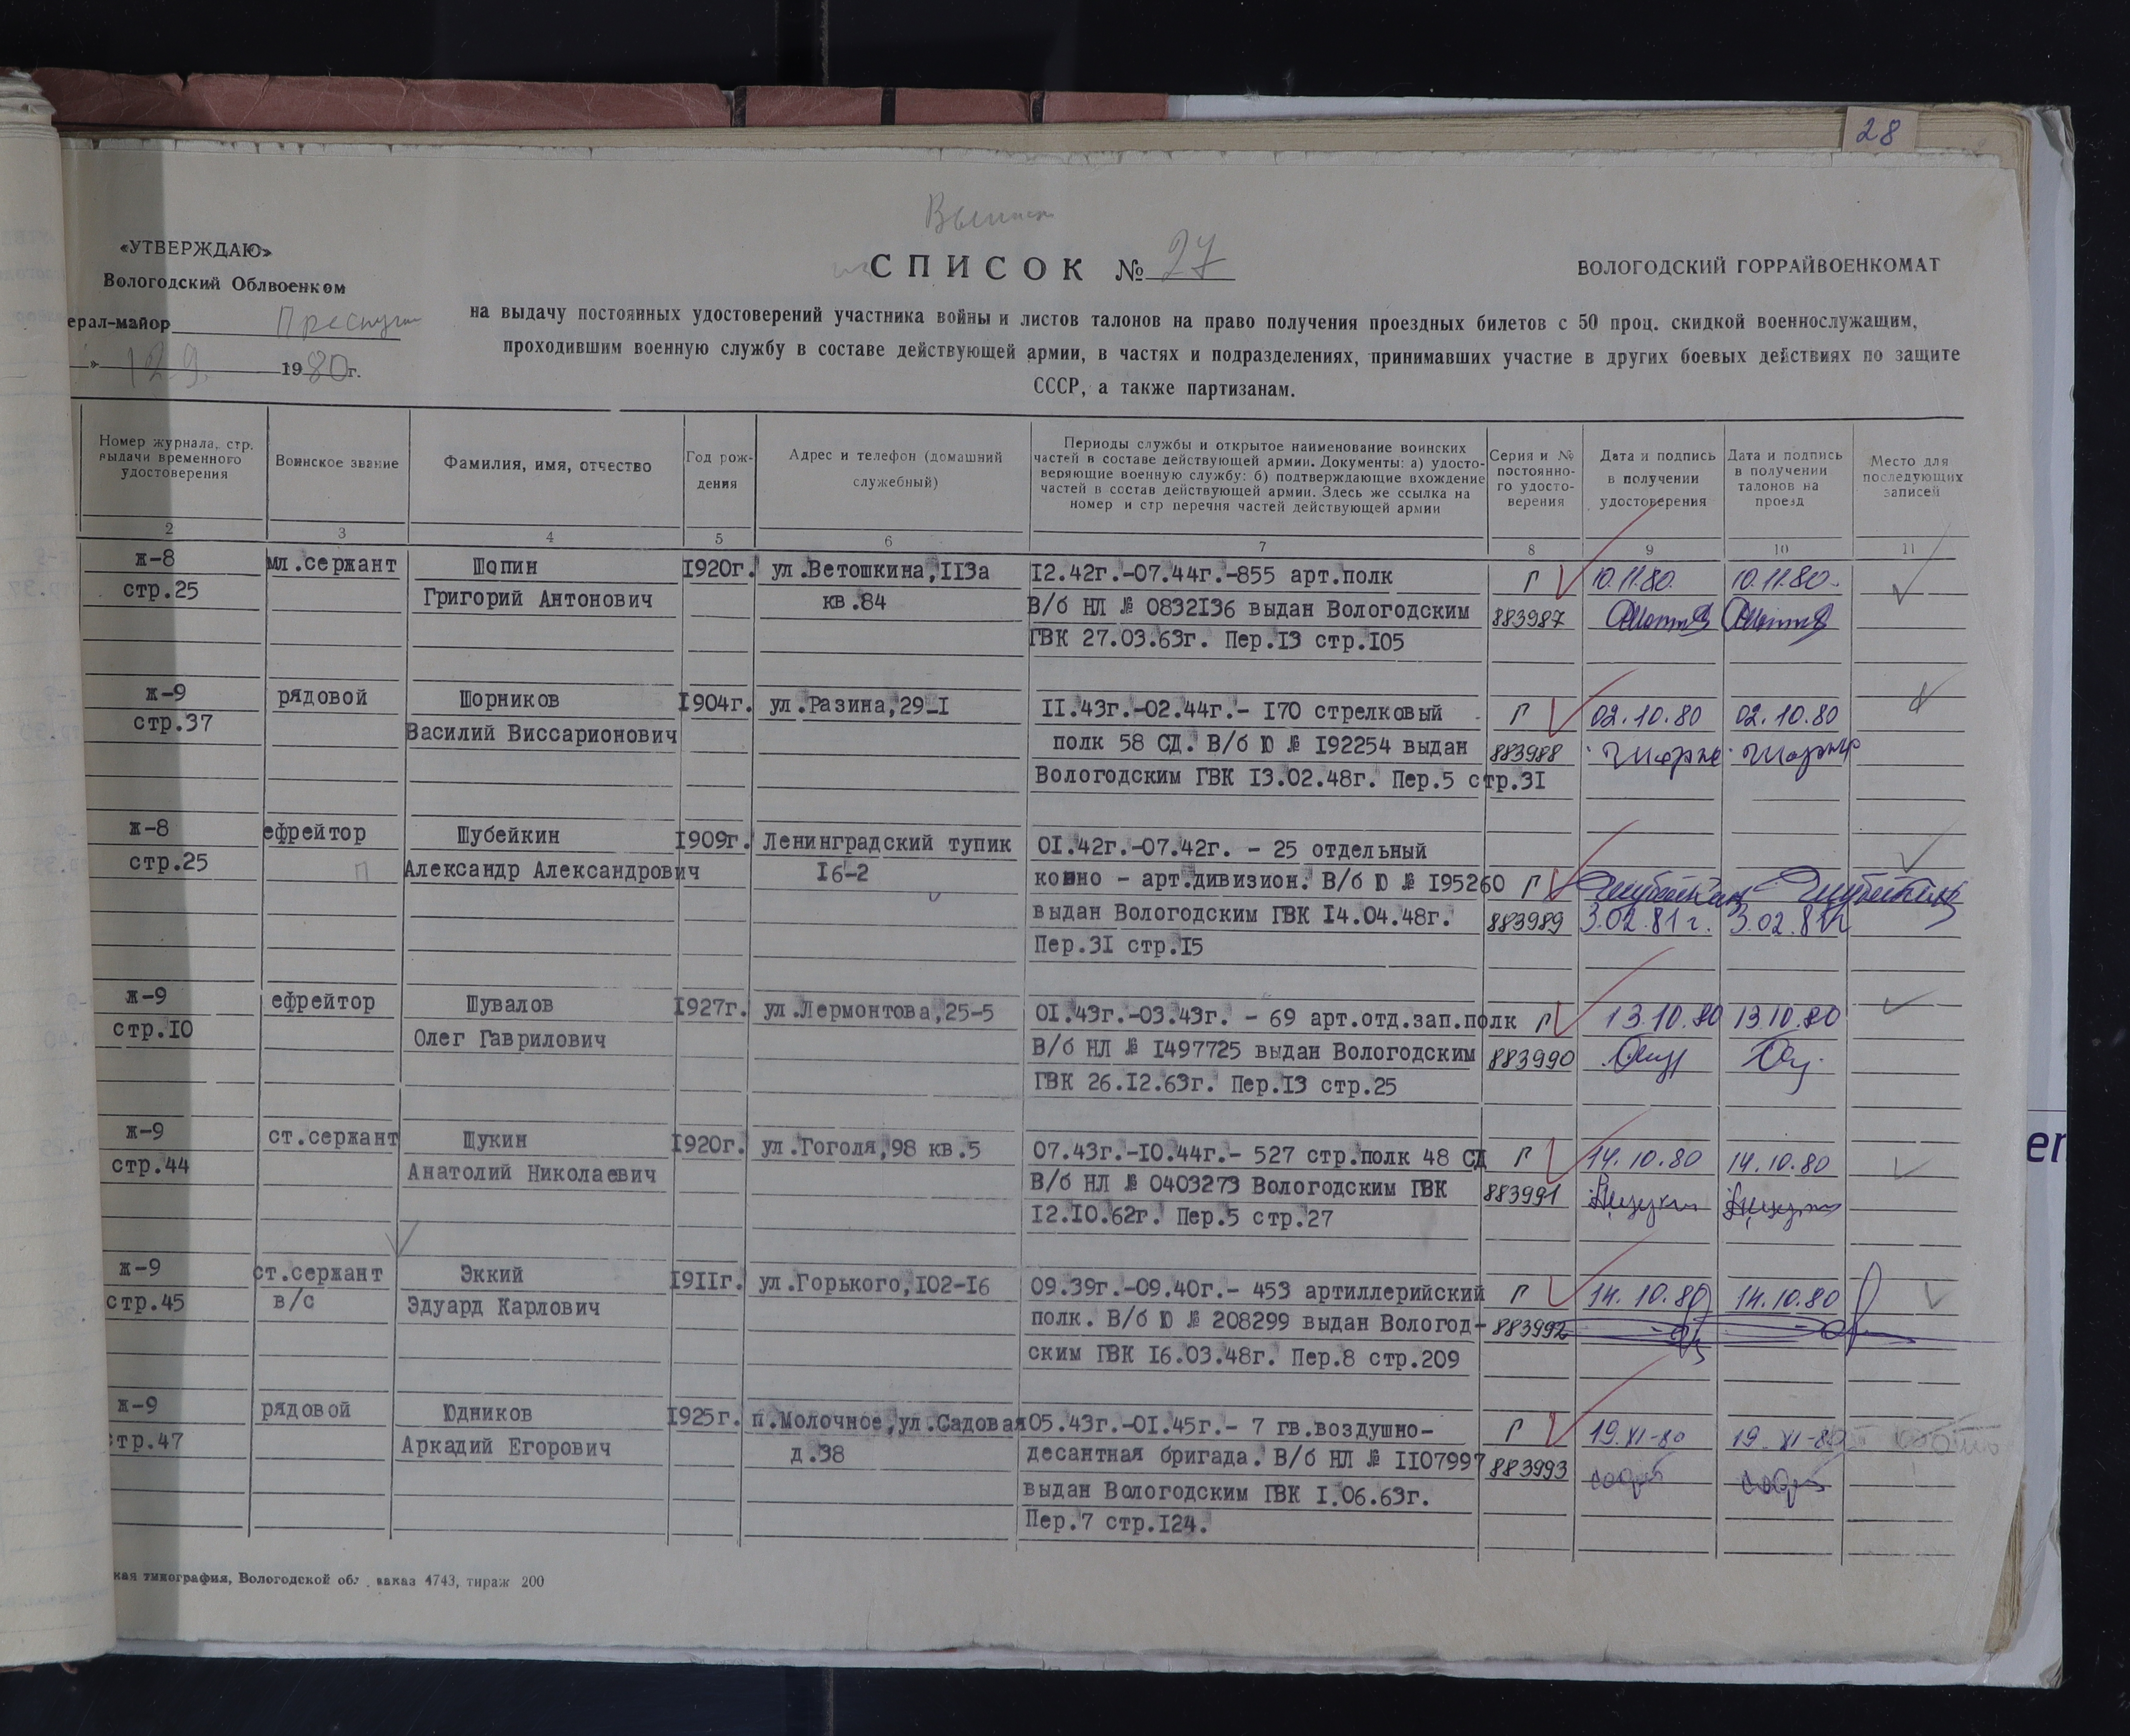 28
СПИСОК № 27
«УТВЕРЖДАЮ»
Вологодский Облвоенком
ерал-майор
» 12 9. 1980г.
ВОЛОГОДСКИЙ ГОРРАЙВОЕНКОМАТ
на выдачу постоянных удостоверений участника войны и листов талонов на право получения проездных билетов с 50 проц. скидкой военнослужащим,
проходившим военную службу в составе действующей армии, в частях и подразделениях, принимавших участие в других боевых действиях по защите
СССР, а также партизанам.
Номер журнала, стр. выдачи временного удостоверения
Воинское звание
Фамилия, имя, отчество
Год рождения
Адрес и телефон (домашний служебный)
Периоды службы и открытое наименование воинских
частей в составе действующей армии. Документы: а) удосто-
веряющие военную службу: б) подтверждающие вхождение
частей в состав действующей армии. Здесь же ссылка на
номер и стр перечня частей действующей армии
Серия и № постоянно-го удосто-верения
Дата и подпись в получении удостоверения
Дата и подпись в получении талонов на проезд
Место для последующих записей
2 3 4 5 6 7 8 9 10 11
ж-8 мл.сержант Шопин 1920г. ул.Ветошкина,113а 12.42г.-07.44г.-855 арт.полк Г 10.11.80. 10.11.80.
стр.25 Григорий Антонович кв.84 В/б НЛ № 0832136 выдан Вологодским 883987
ГВК 27.03.63г. Пер.13 стр.105
ж-9 рядовой Шорников 1904г. ул.Разина,29-1 11.43г.-02.44г.- 170 стрелковый Г 02.10.80 02.10.80
стр.37 Василий Виссарионович полк 58 СД. В/б Ю № 192254 выдан 883988
Вологодским ГВК 13.02.48г. Пер.5 стр.31
ж-8 ефрейтор Шубейкин 1909г. Ленинградский тупик 01.42г.-07.42г. - 25 отдельный
стр.25 П Александр Александрович 16-2 конно - арт.дивизион. В/б Ю № 195260 Г
выдан Вологодским ГВК 14.04.48г. 883989 3.02.81г. 3.02.81г
Пер.31 стр.15
ж-9 ефрейтор Шувалов 1927г. ул.Лермонтова,25-5 01.43г.-03.43г. - 69 арт.отд.зап.полк Г 13.10.80 13.10.80
стр.10 Олег Гаврилович В/б НЛ № 1497725 выдан Вологодским 883990
ГВК 26.12.63г. Пер.13 стр.25
ж-9 ст.сержант Щукин 1920г. ул.Гоголя,98 кв.5 07.43г.-10.44г.- 527 стр.полк 48 СД Г 14.10.80 14.10.80
стр.44 Анатолий Николаевич В/б НЛ № 0403273 Вологодским ГВК 883991
12.10.62г. Пер.5 стр.27
ж-9 ст.сержант Эккий 1911г. ул.Горького,102-16 09.39г.-09.40г.- 453 артиллерийский Г 14.10.80 14.10.80
стр.45 в/с Эдуард Карлович полк. В/б Ю № 208299 выдан Вологод- 883992
ским ГВК 16.03.48г. Пер.8 стр.209
ж-9 рядовой Юдников 1925г. п.Молочное,ул.Садовая 05.43г.-01.45г.- 7 гв.воздушно- Г 19.XI-80 19.XI-80
стр.47 Аркадий Егорович д.38 десантная бригада. В/б НЛ № 1107997 883993
выдан Вологодским ГВК 1.06.63г.
Пер.7 стр.124.
кая типография, Вологодской обл. заказ 4743, тираж 200